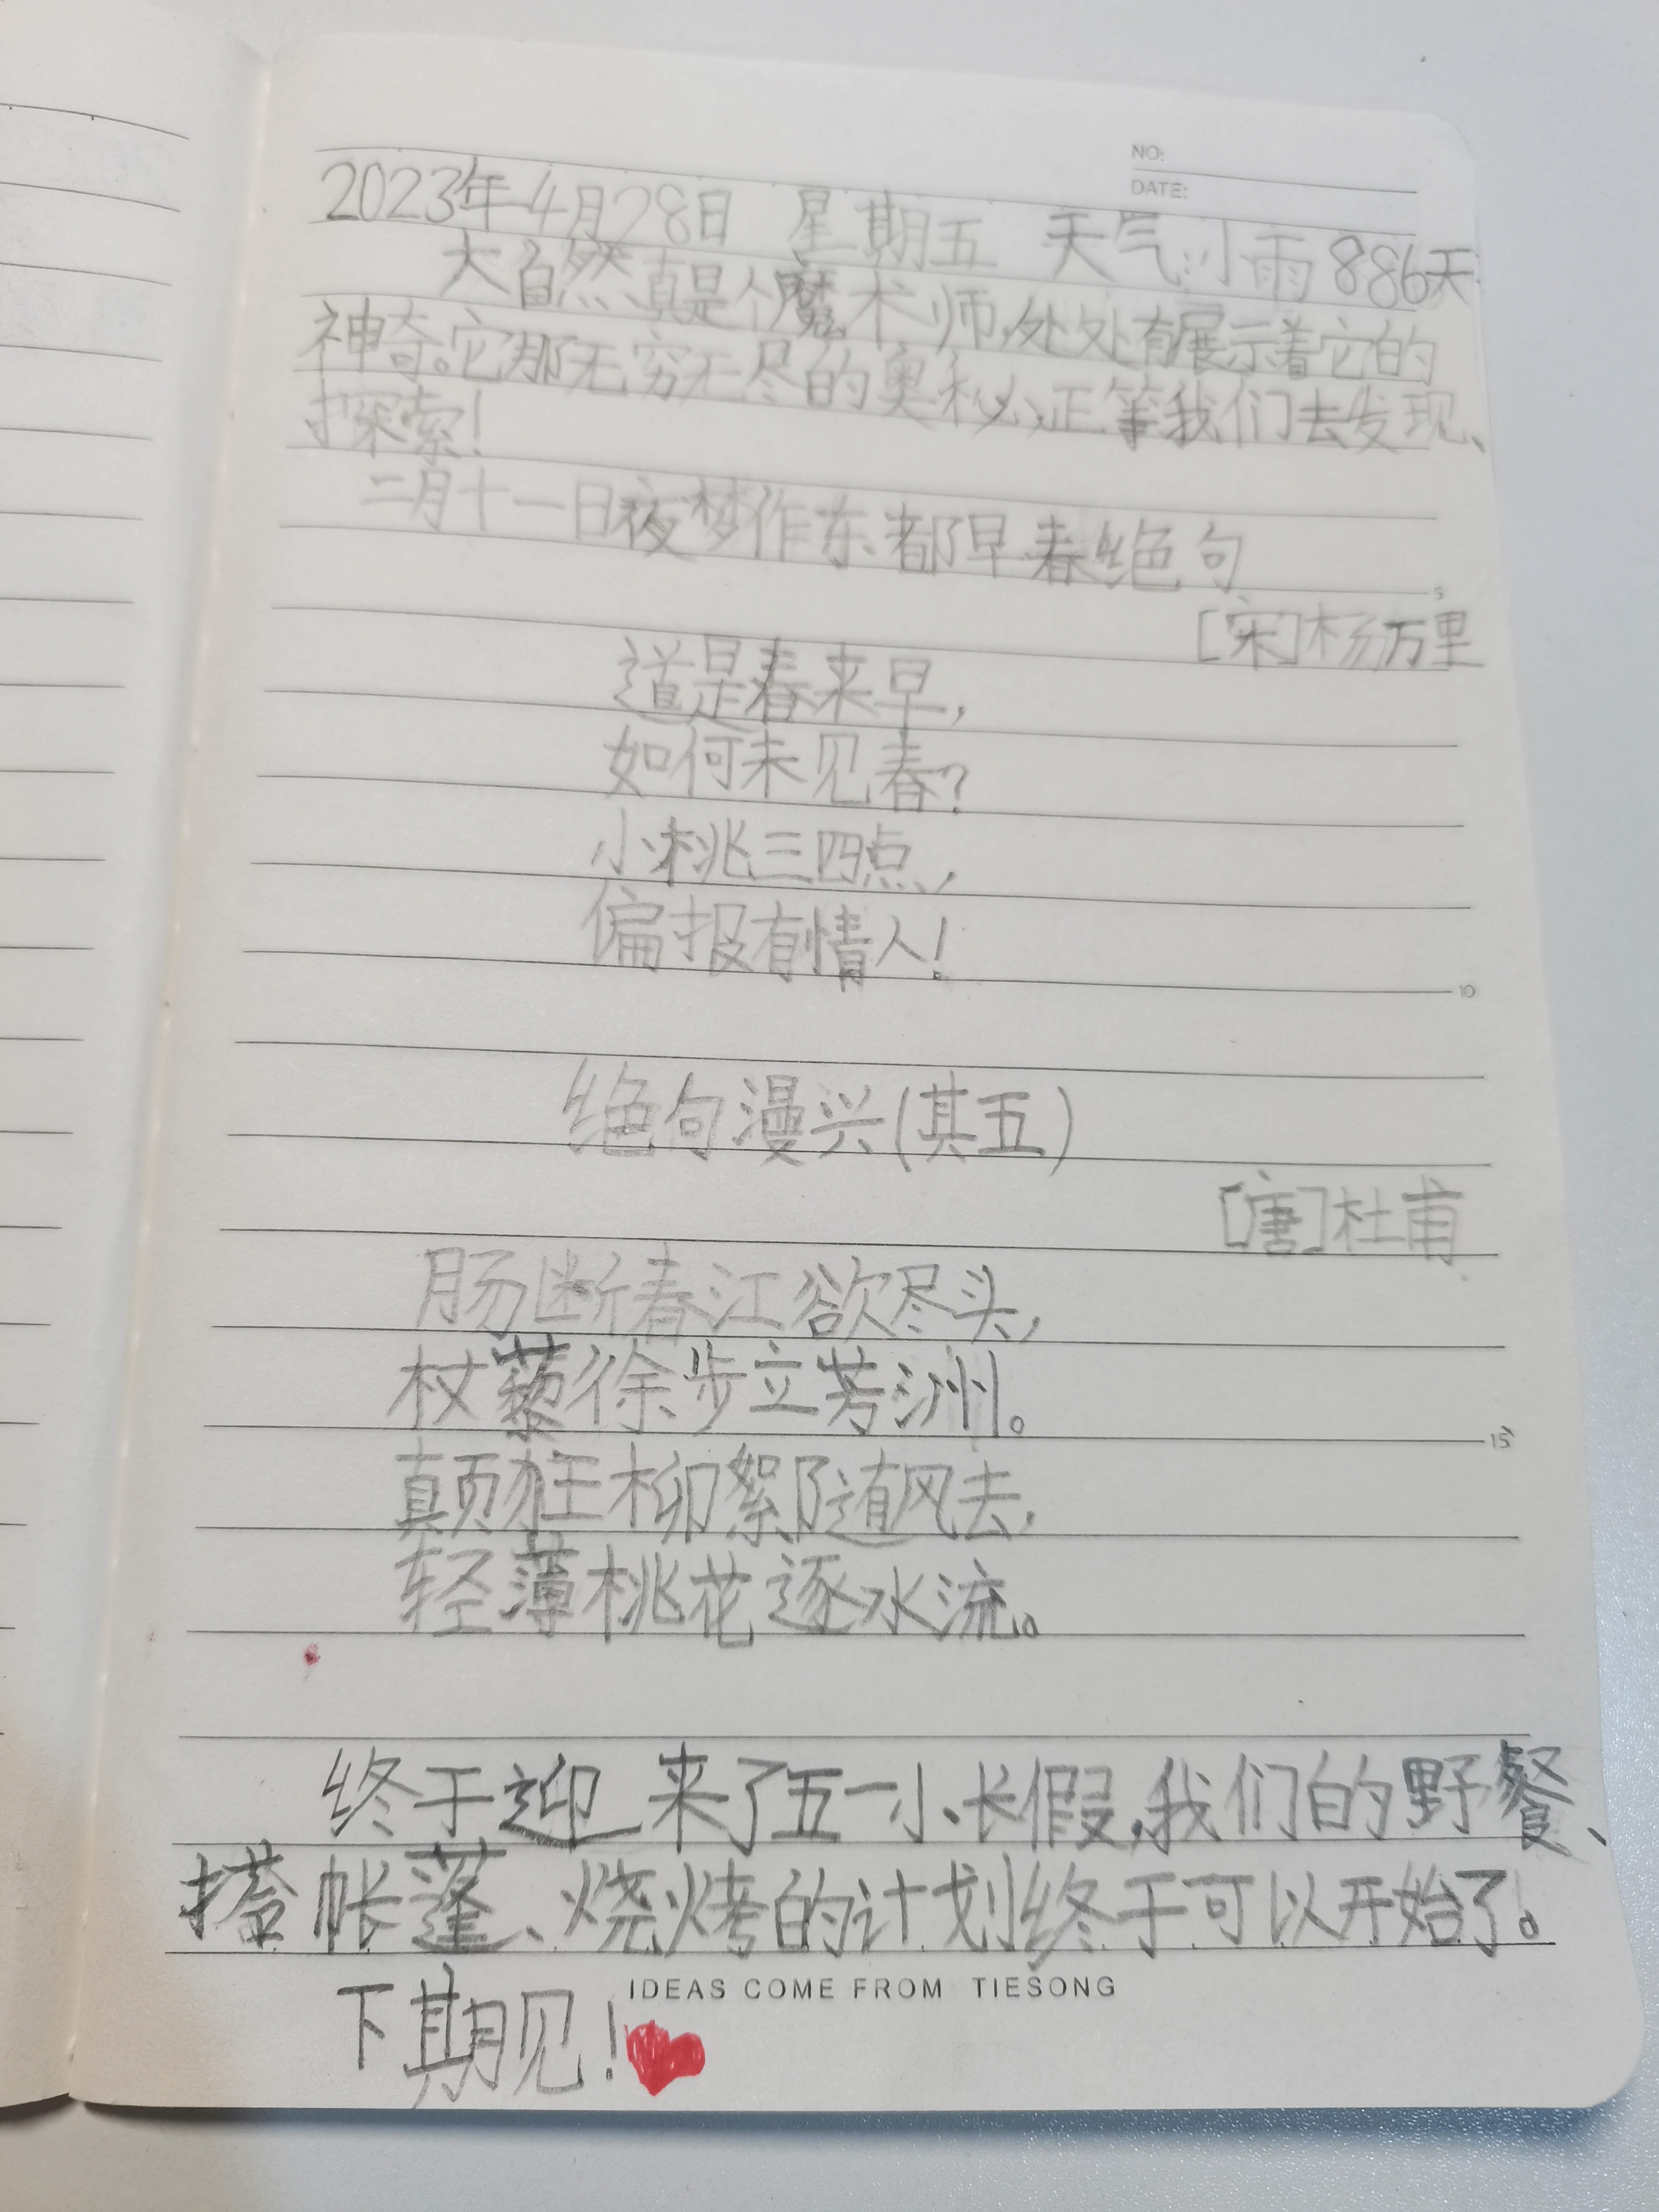 NO:
DATE:
2023年4月28日 星期五 天气:小雨 886天
大自然真是个魔术师,处处有展示着它的
神奇。它那无穷无尽的奥秘,正等我们去发现、
探索!
二月十一日夜梦作东都早春绝句
[宋]杨万里
道是春来早,
如何未见春?
小桃三四点,
偏报有情人!
绝句漫兴(其五)
[唐]杜甫
肠断春江欲尽头,
杖藜徐步立芳洲。
颠狂柳絮随风去,
轻薄桃花逐水流。
终于迎来了五一小长假,我们的野餐、
搭帐蓬、烧烤的计划终于可以开始了。
IDEAS COME FROM TIESONG
下期见!
5
10
15